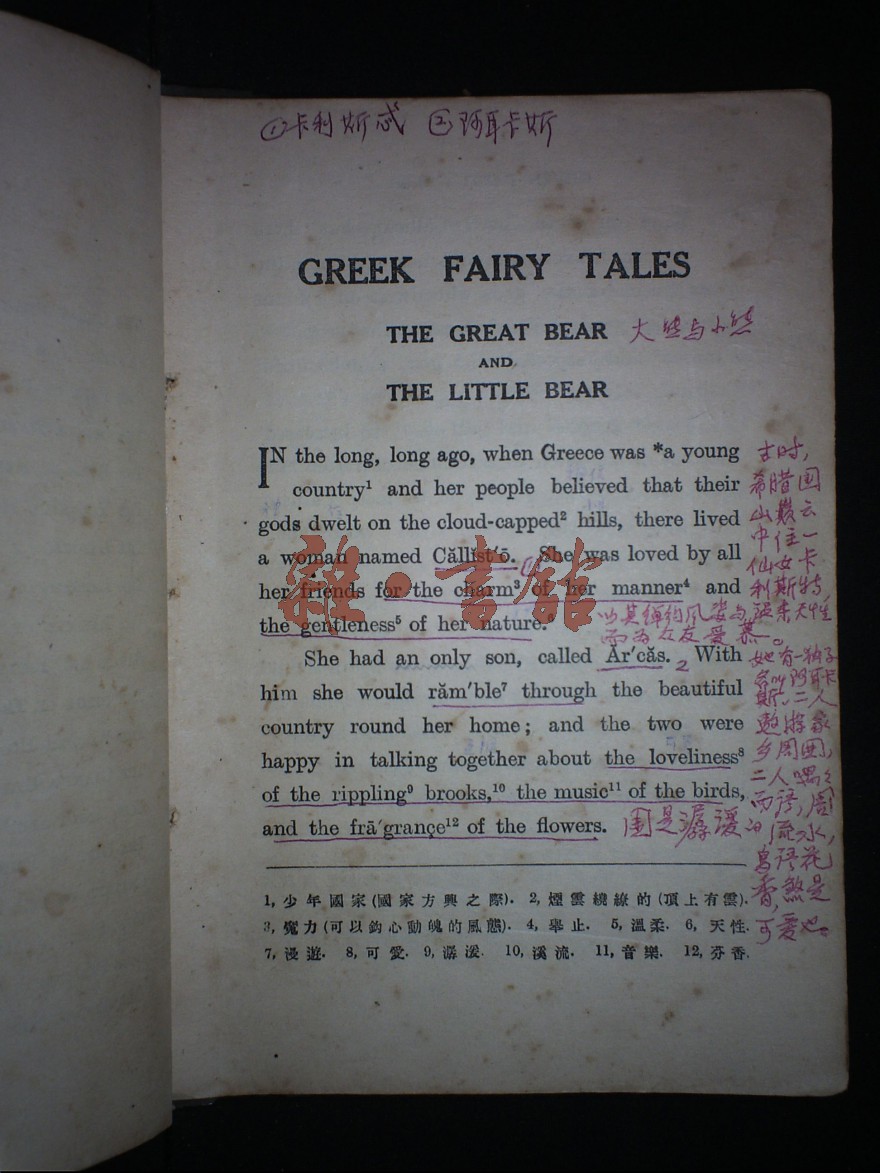 ①卡利斯忒 ②阿耳卡斯
GREEK FAIRY TALES
THE GREAT BEAR 大熊与小熊
AND
THE LITTLE BEAR
IN the long, long ago, when Greece was *a young
country¹ and her people believed that their
gods dwelt on the cloud-capped² hills, there lived
a woman named Căllĭst′ō. She was loved by all
her friends for the charm³ of her manner⁴ and
the gentleness⁵ of her nature.⁶
She had an only son, called Ar′căs. 2 With
him she would răm′ble⁷ through the beautiful
country round her home; and the two were
happy in talking together about the loveliness⁸
of the rippling⁹ brooks,¹⁰ the music¹¹ of the birds,
and the frā′grançe¹² of the flowers.
古时,
希腊国
山巅云
中住一
仙女卡
利斯特,
以其绰约风姿与温柔天性
而为众友爱慕。
她有一独子
名叫阿耳卡
斯。二人
遨游家
乡周围,
二人喁々
而语,周
围是潺湲的流水,
鸟语花
香,煞是
可爱也。
1, 少年國家(國家方興之際). 2, 煙雲繞繚的(頂上有雲).
3, 魔力(可以鈎心動魄的風態). 4, 舉止. 5, 溫柔. 6, 天性.
7, 漫遊. 8, 可愛. 9, 潺湲. 10, 溪流. 11, 音樂. 12, 芬香.
雜·書館